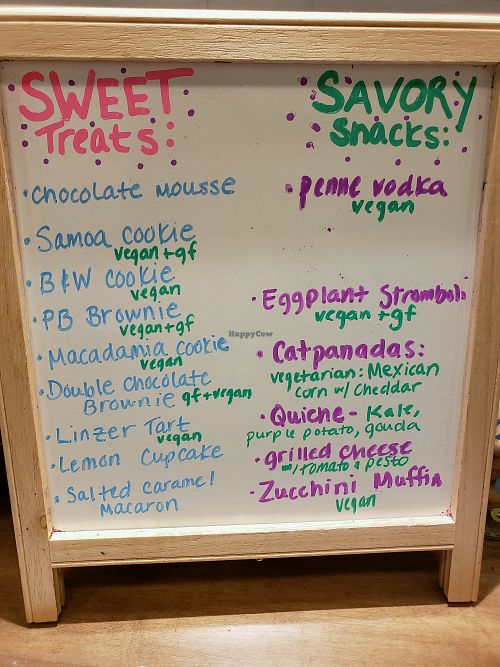 SWEET
Treats:
• Chocolate mousse
• Samoa cookie
vegan + gf
• B&W cookie
vegan
• PB Brownie
vegan + gf
• Macadamia cookie
vegan
• Double Chocolate
Brownie gf + vegan
• Linzer Tart
vegan
• Lemon Cupcake
• Salted caramel
macaron
SAVORY
Snacks:
• penne vodka
vegan
• Eggplant Stromboli
vegan + gf
• Catpanadas:
vegetarian: Mexican
corn w/ Cheddar
• Quiche - Kale,
purple potato, gouda
• grilled cheese
w/ tomato & pesto
• Zucchini Muffin
vegan
HappyCow